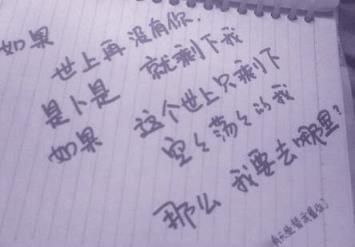 如果
世上再没有你.
是卜是 就剩下我
如果 这个世上只剩下
空々荡々的我
那么 我要去哪里?